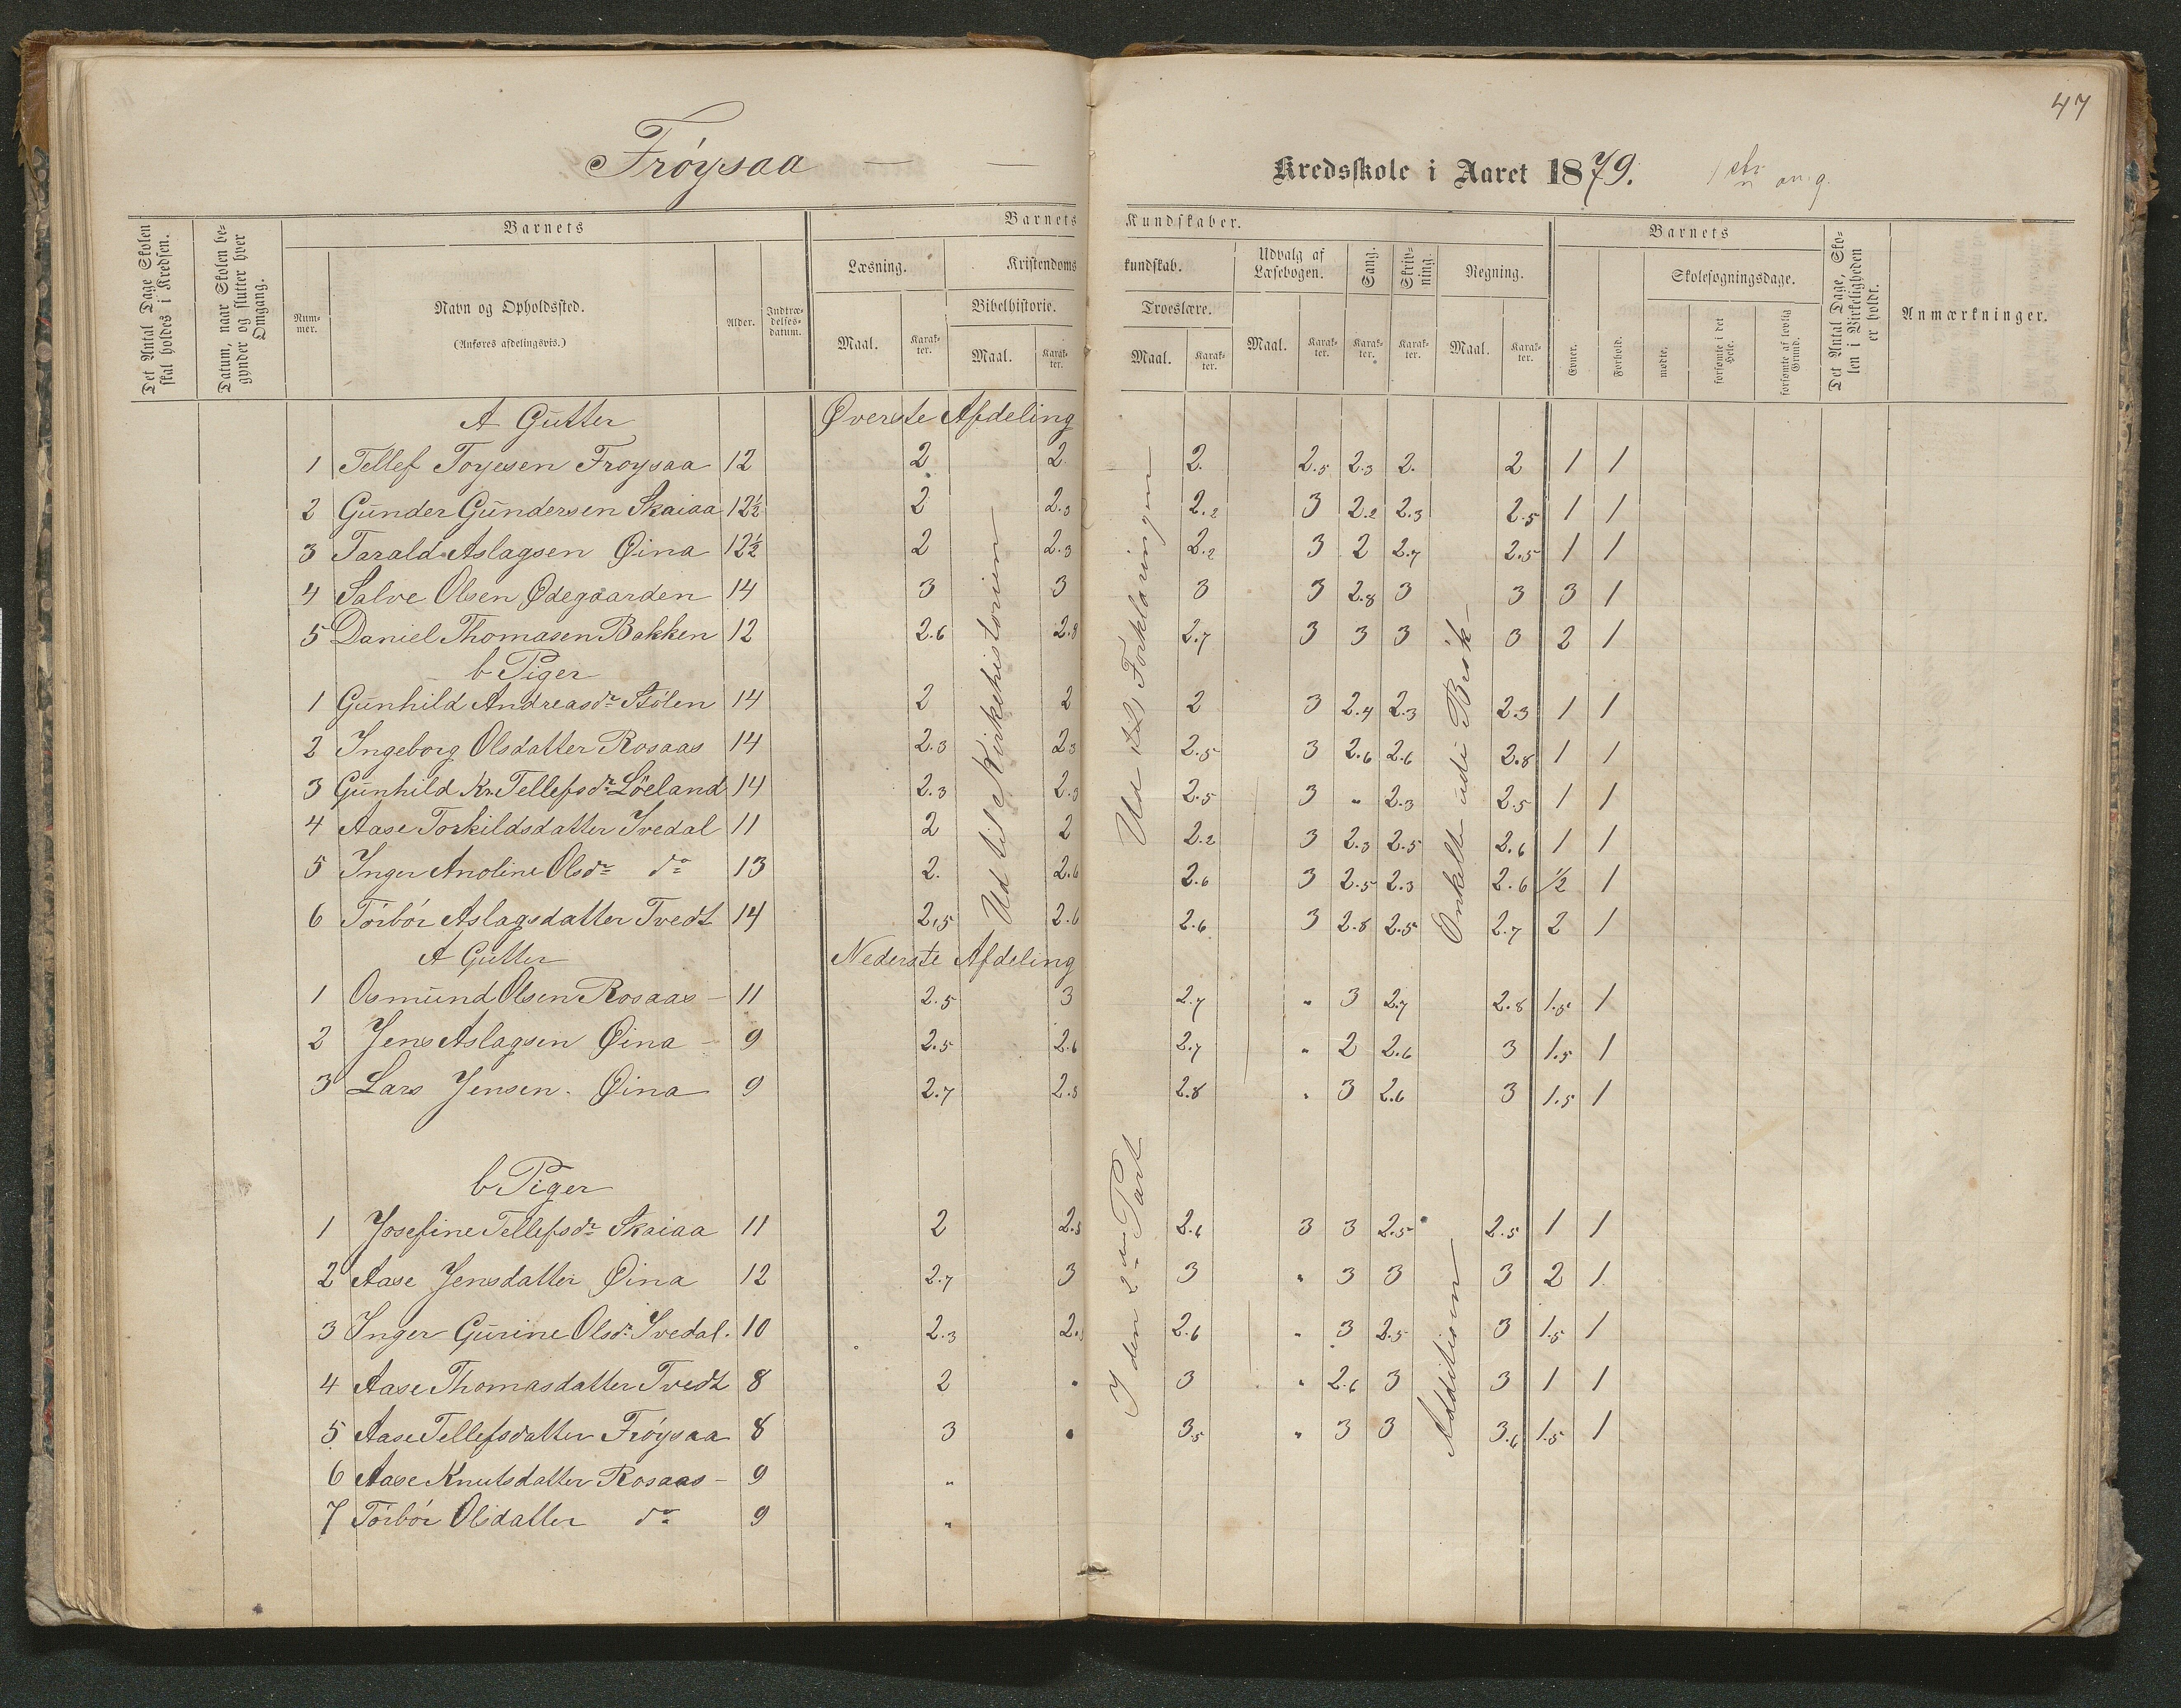 47
Frøysaa — — Kredsskole i Aaret 1879.
Det Antal Dage Skolen skal holdes i Kredsen.
Datum, naar Skolen begynder og slutter hver Omgang.
Barnets
Nummer.
Navn og Opholdssted.
(Anføres afdelingsvis.)
Alder.
Indtrædelsesdatum.
Barnets Kundskaber.
Læsning.
Maal.
Karakter.
Kristendomskundskab.
Bibelhistorie.
Maal.
Karakter.
Troeslære.
Maal.
Karakter.
Udvalg af Læsebogen.
Maal.
Karakter.
Sang.
Karakter.
Skrivning.
Karakter.
Regning.
Maal.
Karakter.
Barnets
Evner.
Forhold.
Skolesøgningsdage.
mødte.
forsømte i det Hele.
forsømte af lovlig Grund.
Det Antal Dage, Skolen i Virkeligheden er holdt.
Anmærkninger.
A Gutter Øverste Afdeling
1 Tellef Toyesen Froysaa 12 2 2. 2. 2.5 2.3 2. 2 1 1
2 Gunder Gundersen Skaiaa 12½ 2 2.3 2.2 3 2.2 2.3 2.5 1 1
3 Tarald Aslagsen Øina 12½ 2 2.3 2.2 3 2 2.7 2.5 1 1
4 Salve Olsen Ødegaarden 14 3 3 3 3 2.8 3 3 3 1
5 Daniel Thomasen Bakken 12 2.6 2.8 2.7 3 3 3 3 2 1
b Piger
1 Gunhild Andreasdr Stólen 14 2 2 2 3 2.4 2.3 2.3 1 1
2 Ingeborg Olsdatter Rosaas 14 2.3 2.3 2.5 3 2.6 2.6 2.8 1 1
3 Gunhild Kr. Tellefsdr Löeland 14 2.3 2.3 2.5 3 " 2.3 2.5 1 1
4 Aase Torkildsdatter Ivedal 11 2 2 2.2 3 2.3 2.5 2.6 1 1
5 Inger Anoline Olsdr do 13 2. 2.6 2.6 3 2.5 2.3 2.6 ½ 1
6 Tórbór Aslagsdatter Tvedt 14 2,5 2.6 2.6 3 2.8 2.5 2.7 2 1
Ud til Kirkehistorien
Ud Forklaringen
Enkelt
A Gutter Nederste Afdeling
1 Osmund Olsen Rosaas — 11 2.5 3 2.7 " 3 2.7 2.8 1.5 1
2 Jens Aslagsen Øina — 9 2.5 2.6 2.7 " 2 2.6 3 1.5 1
3 Lars Jensen. Øina 9 2.7 2.8 2.8 " 3 2.6 3 1.5 1
b Piger
1 Josefine Tellefsdr Skaiaa 11 2 2.5 2.6 3 3 2.5 2.5 1 1
2 Aase Jensdatter Øina 12 2.7 3 3 " 3 3 3 2 1
3 Inger Gurine Olsdr Ivedal. 10 2.3 2. 2.6 " 3 2.5 3 1.5 1
4 Aase Thomasdatter Tvedt 8 2 " 3 " 2.6 3 3 1 1
5 Aase Tellefsdatter Fróysaa 8 3 " 3.5 " 3 3 3.6 1.5 1
6 Aase Knutsdatter Rosaas — 9 "
7 Tórbór Olsdatter do 9 "
I den 2en Part
Additionen